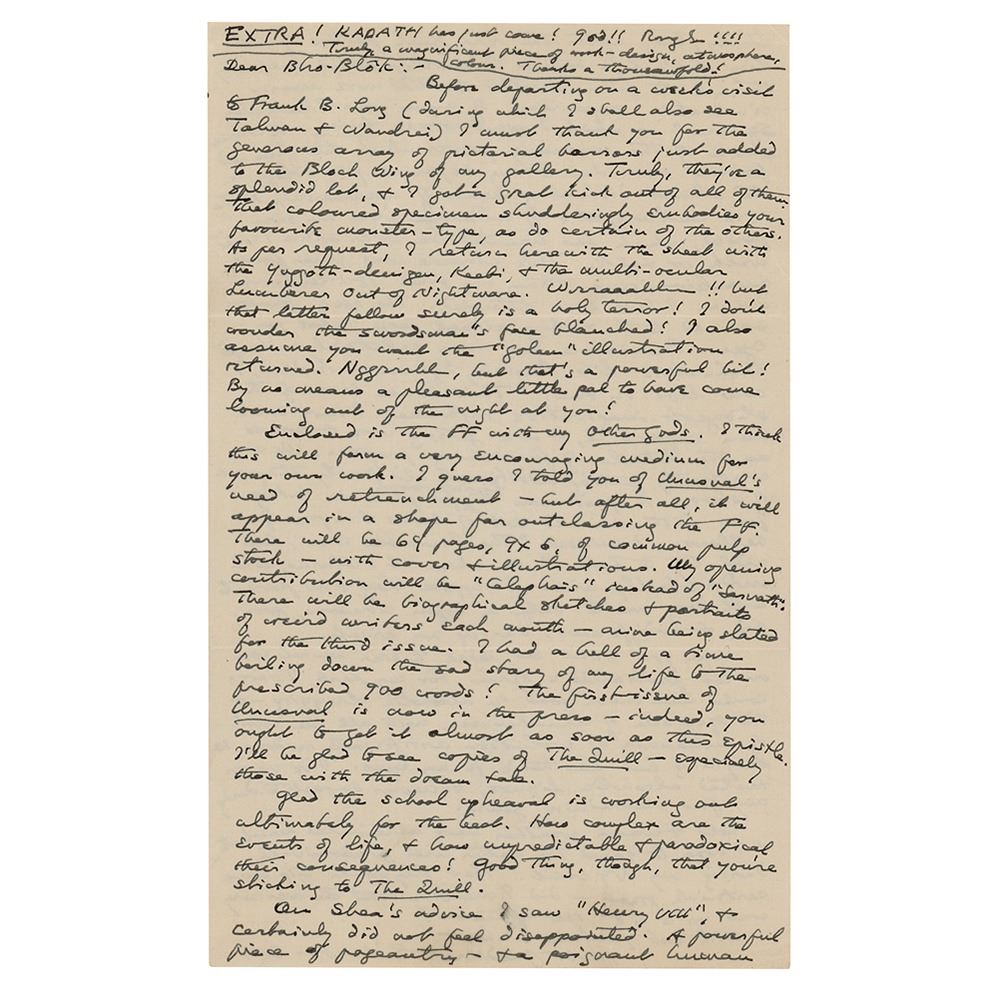 EXTRA! KADATH has just come! God!! !!!!
Truly a magnificent piece of work – design, atmosphere,
colour. Thanks a thousandfold!
Dear Bho-Blôk:–
Before departing on a week's visit
to Frank B. Long (during which I shall also see
Talman & Wandrei) I must thank you for the
generous array of pictorial horrors just added
to the Bloch wing of my gallery. Truly, they're a
splendid lot, & I got a great kick out of all of them.
That coloured specimen shudderingly embodies your
favourite monster-type, as do certain of the others.
As per request, I return herewith the sheet with
the Yuggoth-denizen, & the multi-ocular
Lumberer Out of Nightmare. !! but
that latter fellow surely is a holy terror! I don't
wonder the swordsman's face blanched! I also
assume you want the "golem" illustration
returned. , but that's a powerful bit!
By no means a pleasant little pal to have come
looming out of the night at you!
Enclosed is the FF with my Other Gods. I think
this will form a very encouraging medium for
your own work. I guess I told you of Unusual's
need of retrenchment – but after all, it will
appear in a shape far outclassing the FF.
There will be 64 pages, 9x6, of common pulp
stock – with cover & illustrations. My opening
contribution will be "Celephaïs" instead of "Sarnath".
There will be biographical sketches & portraits
of weird writers each month – mine being slated
for the third issue. I had a hell of a time
boiling down the sad story of my life to the
prescribed 900 words! The first issue of
Unusual is now in the press – indeed, you
ought to get it almost as soon as this epistle.
I'll be glad to see copies of The Quill – especially
those with the dream tale.
Glad the school upheaval is working out
ultimately for the best. How complex are the
events of life, & how unpredictable & paradoxical
their consequences! Good thing, though, that you're
sticking to The Quill.
On Shea's advice I saw "Henry VIII", &
certainly did not feel disappointed. A powerful
piece of pageantry – & a poignant human